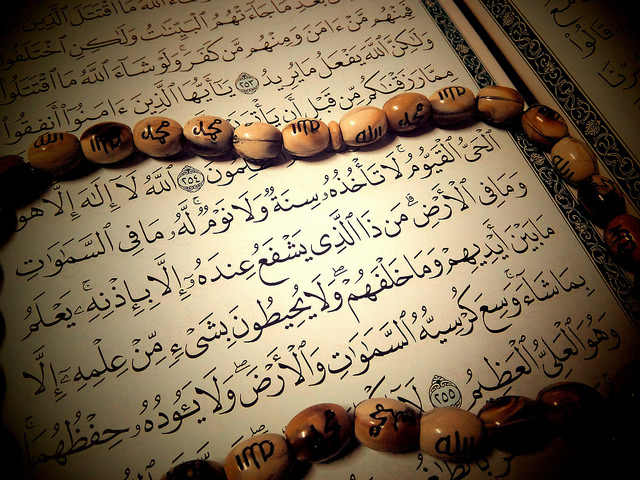 شَآءَ ٱللَّهُ مَا ٱقْتَتَلَ ٱلَّذِينَ
بَعْدِ مَا جَآءَتْهُمُ ٱلْبَيِّنَٰتُ وَلَٰكِنِ ٱخْتَلَفُوا۟
فَمِنْهُم مَّنْ ءَامَنَ وَمِنْهُم مَّن كَفَرَ وَلَوْ شَآءَ ٱللَّهُ مَا ٱقْتَتَلُوا۟
وَلَٰكِنَّ ٱللَّهَ يَفْعَلُ مَا يُرِيدُ ٢٥٣ يَٰٓأَيُّهَا ٱلَّذِينَ ءَامَنُوٓا۟ أَنفِقُوا۟
مِمَّا رَزَقْنَٰكُم مِّن قَبْلِ أَن
٢٥٤ ٱللَّهُ لَآ إِلَٰهَ إِلَّا هُوَ
ٱلْحَىُّ ٱلْقَيُّومُ ۚ لَا تَأْخُذُهُۥ سِنَةٌ وَلَا نَوْمٌ ۚ لَّهُۥ مَا فِى ٱلسَّمَٰوَٰتِ
وَمَا فِى ٱلْأَرْضِ ۗ مَن ذَا ٱلَّذِى يَشْفَعُ عِندَهُۥٓ إِلَّا بِإِذْنِهِۦ ۚ يَعْلَمُ
مَا بَيْنَ أَيْدِيهِمْ وَمَا خَلْفَهُمْ ۖ وَلَا يُحِيطُونَ بِشَىْءٍ مِّنْ عِلْمِهِۦٓ إِلَّا
بِمَا شَآءَ ۚ وَسِعَ كُرْسِيُّهُ ٱلسَّمَٰوَٰتِ وَٱلْأَرْضَ ۖ وَلَا يَـُٔودُهُۥ حِفْظُهُمَا ۚ
وَهُوَ ٱلْعَلِىُّ ٱلْعَظِيمُ ٢٥٥ لَآ
قَالُوا۟
الله
محمد
محمد
الله
محمد
الله
محمد
الله